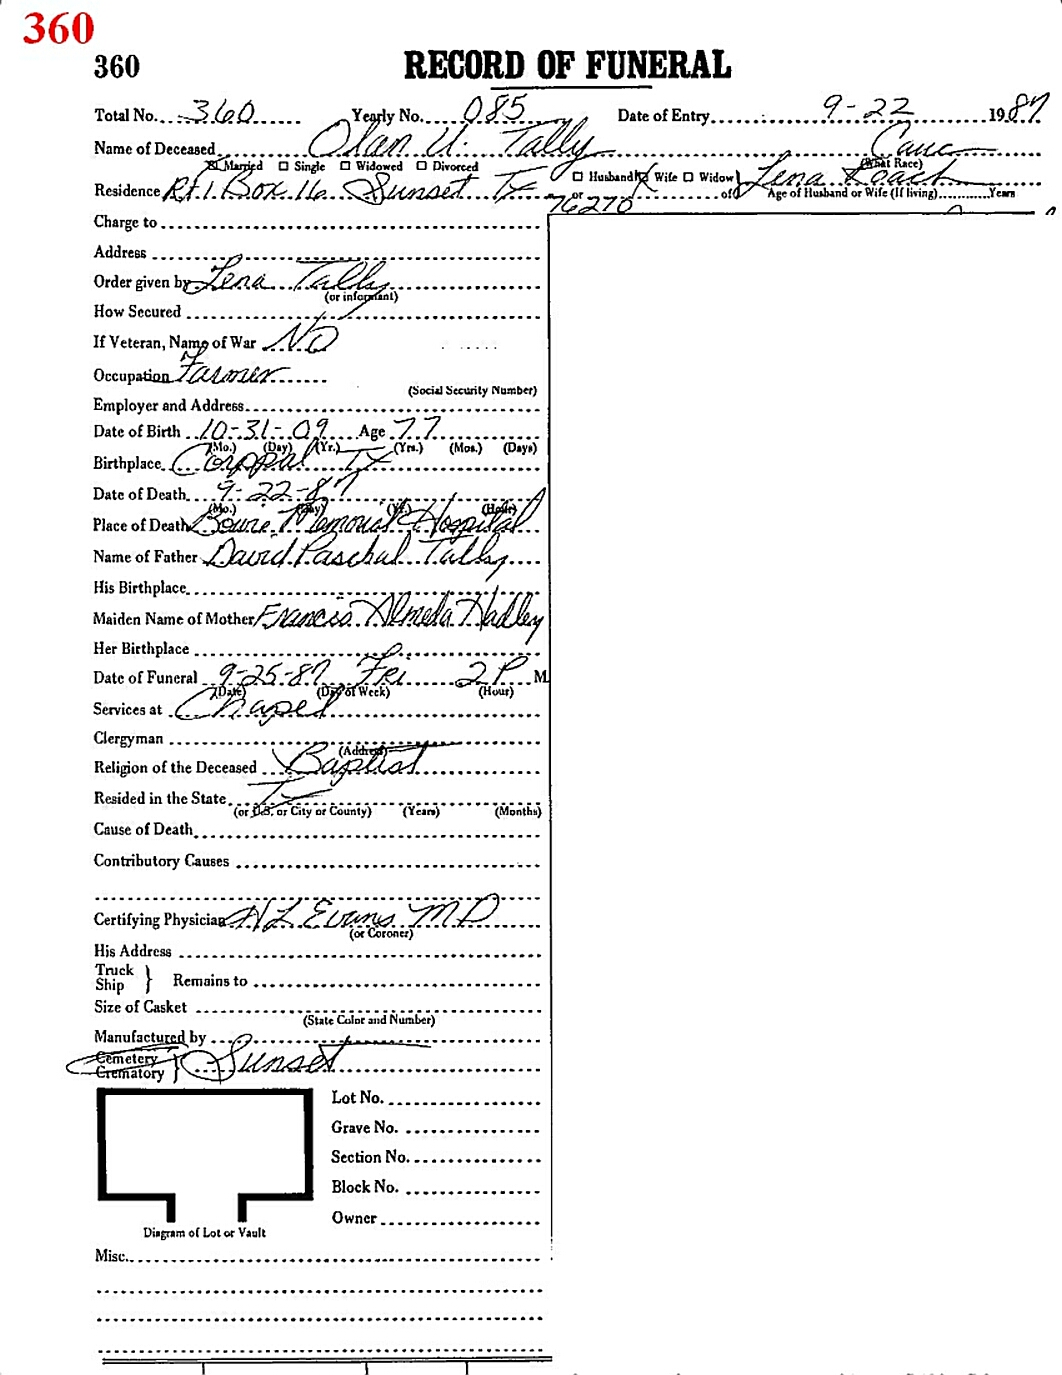 360
360 RECORD OF FUNERAL
Total No. 360 Yearly No. 085 Date of Entry 9-22 1987
Name of Deceased Olan U. Tally Cauc
☒ Married ☐ Single ☐ Widowed ☐ Divorced (What Race)
Residence Rt. 1 Box 16 Sunset Tx 76270 ☐ Husband ☒ Wife ☐ Widow or of Lena Roach Age of Husband or Wife (If living) Years
Charge to
Address
Order given by Lena Tally
(or informant)
How Secured
If Veteran, Name of War No
Occupation Farmer
(Social Security Number)
Employer and Address
Date of Birth 10-31-09 Age 77
(Mo.) (Day) (Yr.) (Yrs.) (Mos.) (Days)
Birthplace Coppal Tx
Date of Death 9-22-87
(Mo.) (Day) (Yr.) (Hour)
Place of Death Bowie Memorial Hospital
Name of Father David Paschal Tally
His Birthplace
Maiden Name of Mother Francis Almeda Hadley
Her Birthplace
Date of Funeral 9-25-87 Fri 2 P M.
(Date) (Day of Week) (Hour)
Services at Chapel
Clergyman
(Address)
Religion of the Deceased Baptist
Resided in the State Tx
(or U.S. or City or County) (Years) (Months)
Cause of Death
Contributory Causes
Certifying Physician H L Evans MD
(or Coroner)
His Address
Truck
Ship } Remains to
Size of Casket
(State Color and Number)
Manufactured by
Cemetery
Crematory } Sunset
Lot No.
Grave No.
Section No.
Block No.
Owner
Diagram of Lot or Vault
Misc.